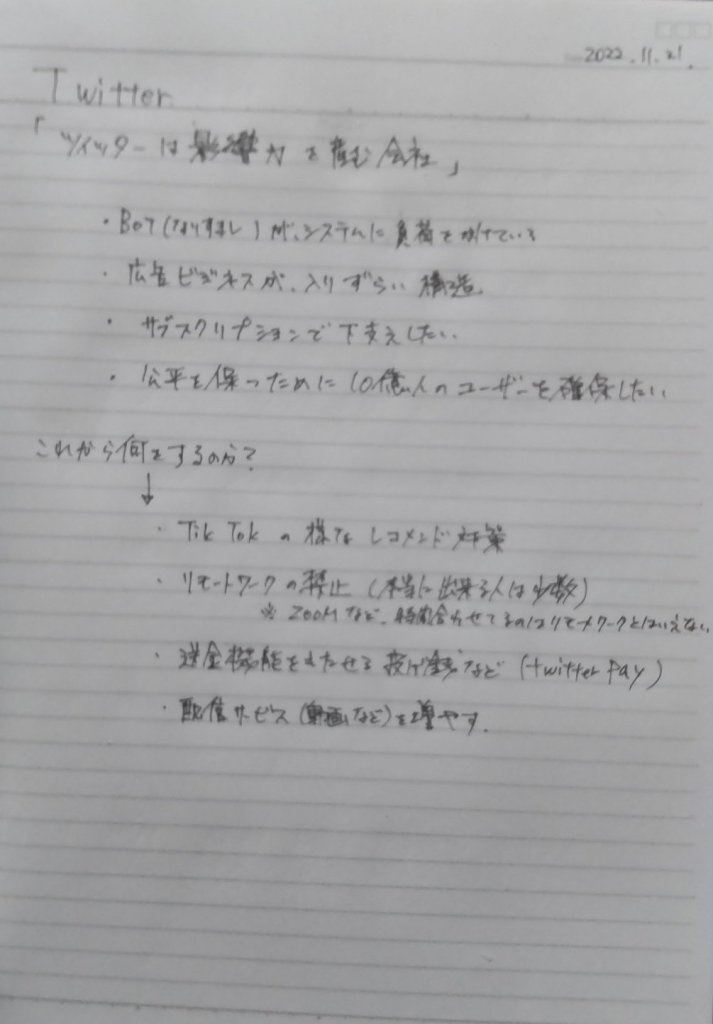 2022.11.21.
Twitter
「ツイッターは影響力を産む会社」
・BOT(なりすまし)が、システムに負荷をかけている
・広告ビジネスが、入りずらい構造
・サブスクリプションで下支えしたい
・公平を保つために10億人のユーザーを確保したい
これから何をするのか?
↓
・TikTokの様なレコメンド対策
・リモートワークの禁止(本当に出来る人は少数)
※ZOOMなど、時間合わせてるのはリモートワークとはいえない
・送金機能をもたせる 投げ銭など(twitter Pay)
・配信サービス(動画など)を増やす.